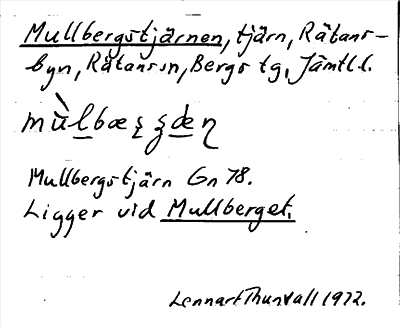 Mullbergstjärnen, tjärn, Rätans-
byn, Rätans sn, Bergs tg, Jämtl l.
Mullbergstjärn Gn 78.
Ligger vid Mullberget.
Lennart Thunvall 1972.